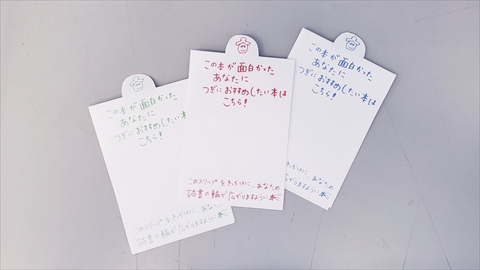 この本が面白かった
あなたに
つぎにおすすめしたい本は
こちら!
このスリップをきっかけに、あなたの
読書の輪が広がりますように
この本が面白かった
あなたに
つぎにおすすめしたい本は
こちら!
このスリップをきっかけに、あなたの
読書の輪が広がりますように
この本が面白かった
あなたに
つぎにおすすめしたい本は
こちら!
このスリップをきっかけに、あなたの
読書の輪が広がりますように